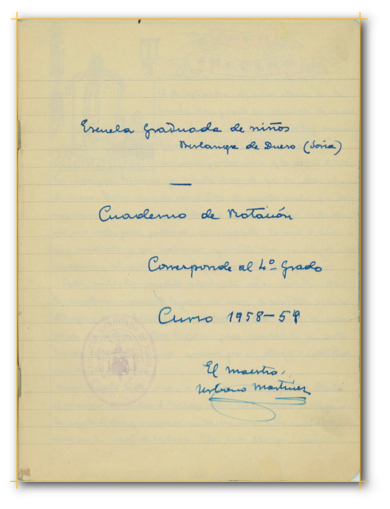 Escuela Graduada de niños
Berlanga de Duero (Soria)
Cuaderno de Rotación
Corresponde al 4º Grado
Curso 1958-59
El Maestro,
Urbano Martínez